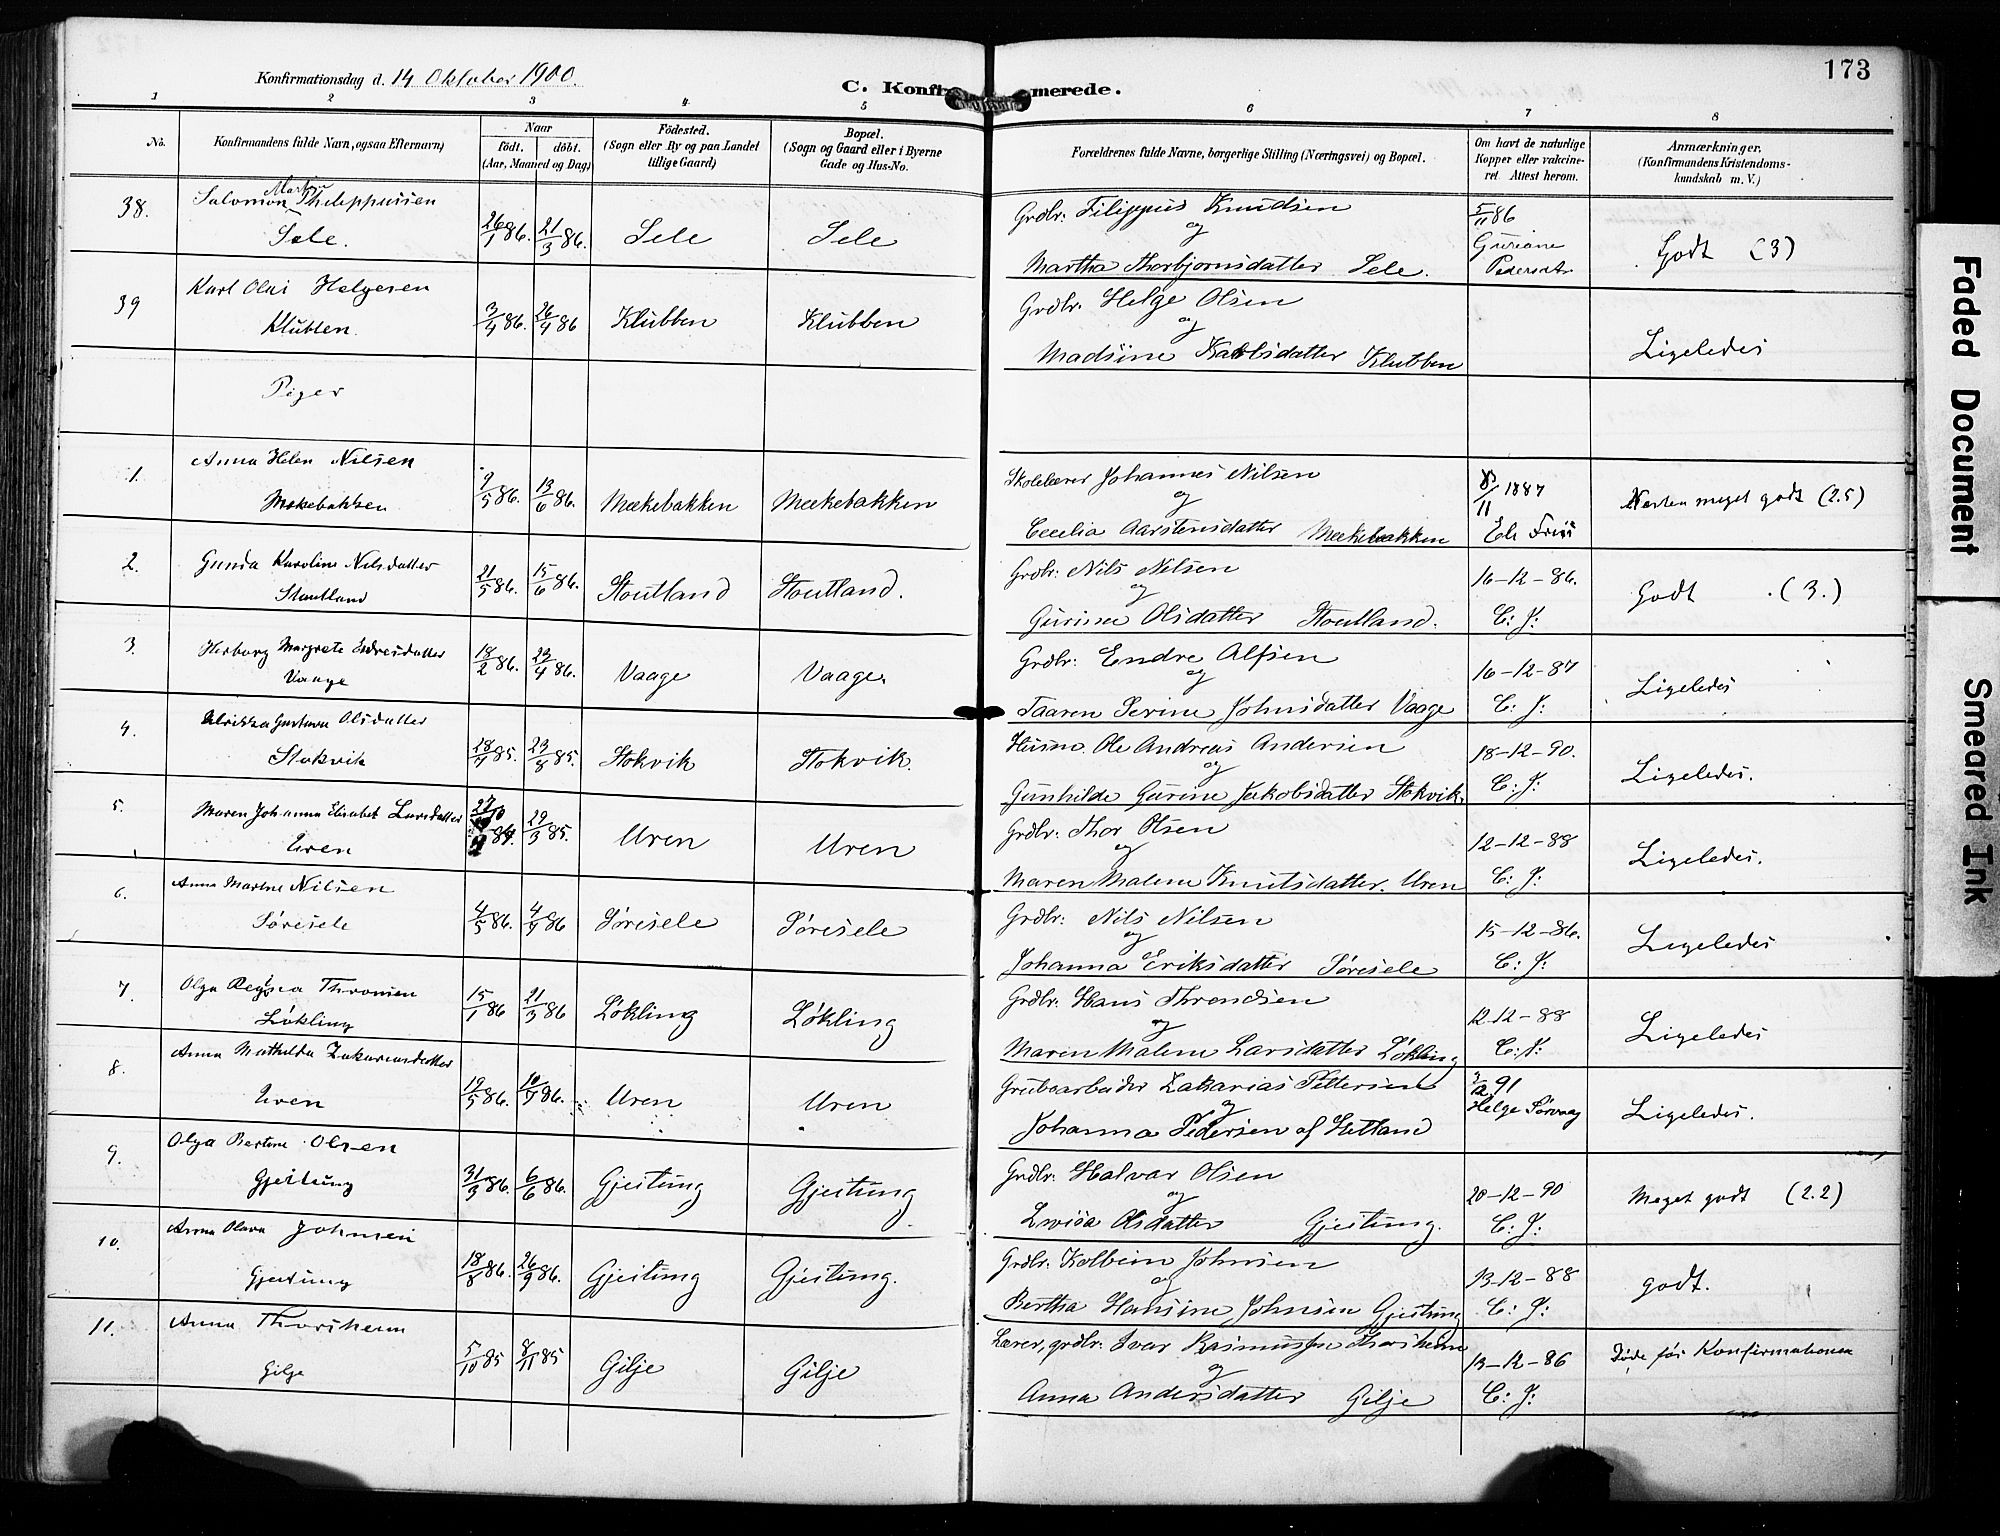 173
Konfirmationsdag d. 14 Oktober 1900.
C. Konfirmerede.
1 2 3 4 5 6 7 8
No.
Konfirmandens fulde Navn, ogsaa Efternavn)
Naar
født. døbt.
(Aar, Maaned og Dag)
Fødested.
(Sogn eller By og paa Landet
tillige Gaard)
Bopæl.
(Sogn og Gaard eller i Byerne
Gade og Hus-No.
Forældrenes fulde Navne, borgerlige Stilling (Næringsvei) og Bopæl.
Om havt de naturlige
Kopper eller vakcine-
ret Attest herom.
Anmærkninger.
(Konfirmandens Kristendoms-
kundskab m. V.)
38. Salomon Martin Philippussen
Sele. 26/1 86. 21/3 86. Sele Sele
Grdbr: Filippus Knudsen
og
Martha Thorbjørnsdatter Sele.
5/11 86
Guriane
Pedersdtr
Godt (3)
39 Karl Olai Helgesen
Klubben. 3/4 86. 26/4 86 Klubben Klubben
Grdbr. Helge Olsen
og
Madsine Karlsdatter Klubben
Ligeledes
Piger
1. Anna Helen Nilsen
Mækebakken 9/5 86. 13/6 86. Mækebakken Mækebakken
Skolelærer Johannes Nilsen
og
Cecelia Aarstensdatter Mækebakken
8/11 1887
Næsten meget godt (2.5)
2. Gunda Karoline Nilsdatter
Stoutland 21/5 86. 15/6 86. Stoutland Stoutland.
Grdbr: Nils Nilsen
og
Gurine Olsdatter Stoutland.
16-12-86.
C: J:
Godt (3.)
3. Herborg Margrete Endresdatter
Vaage 18/2 86. 23/4 86. Vaage Vaage.
Grdbr: Endre Alfsen
og
Taaren Serine Johnsdatter Vaage
16-12-87
C: J:
Ligeledes
4. Ulrikka Gustava Olsdatter
Stokvik 85. 23/8 85. Stokvik Stokvik.
Husm. Ole Andreas Andersen
og
Gunhilde Gurine Jakobsdatter Stokvik.
18-12-90.
C: J:
Ligeledes.
5. Maren Johanna Elisabet Larsdatter
Uren 84. 29/3 85. Uren Uren
Grdbr: Thor Olsen
og
Maren Malene Knutsdatter. Uren
12-12-88
C: J:
Ligeledes.
6. Anna Martine Nilsen
Søresele 4/5 86. 86 Søresele Søresele
Grdbr: Nils Nilsen
og
Johanna Eriksdatter Søresele
15-12-86.
C: J:
Ligeledes
7. Olga Thronsen
Løkling 15/1 86 21/3 86 Løkling Løkling
Grdbr: Hans Throndsen
og
Maren Malene Larsdatter Løkling
12-12-88
C: J:
Ligeledes
8. Anna Mathilda Zakariasdatter
Uren 19/5 86. 86. Uren Uren
Grubearbeider Zakarias Pettersen
og
Johanna Pedersen af Hetland
91
Helge Sørvaag
Ligeledes.
9. Olga Bertine Olsen
Gjeitung 31/3 86. 6/6 86. Gjeitung Gjeitung
Grdbr: Halvar Olsen
og
Lovisa Olsdatter Gjeitung.
20-12-90
C: J:
Meget godt (2.2)
10. Anna Olava Johnsen
Gjeitung 18/8 86. 26/9 86. Gjeitung Gjeitung.
Grdbr: Kolbein Johnsen
og
Bertha Hansine Johnsen Gjeitung
13-12-88
C: J:
godt.
11. Anna Thorsheim
Gilje 5/10 85 8/11 85 Gilje Gilje
Lærer, grdbr: Ivar Rasmussen Thorsheim
og
Anna Andersdatter Gilje
13-12-86
C: J:
Døde før Konfirmationen
Faded Document
Smeared Ink